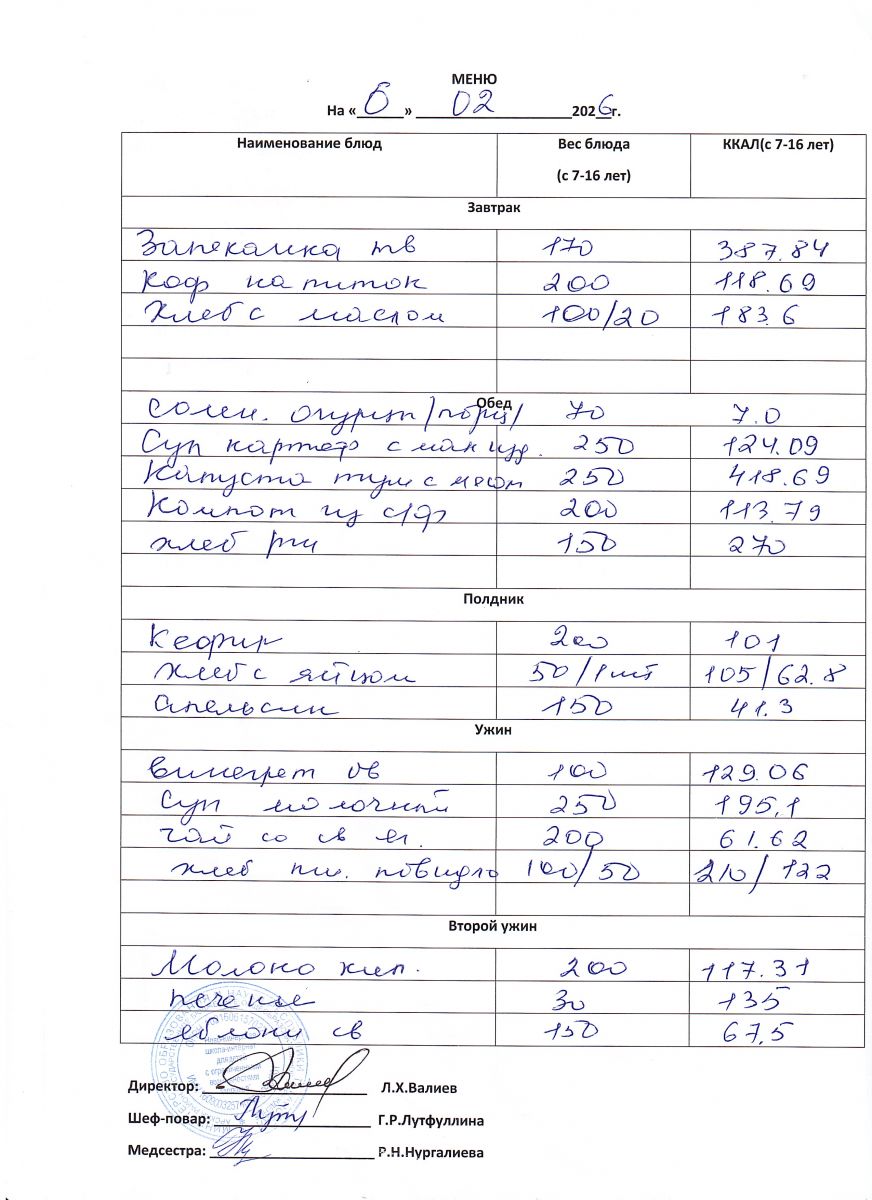 МЕНЮ
На « 6 » 02 2026 г.
Наименование блюд Вес блюда (с 7-16 лет) ККАЛ(с 7-16 лет)
Завтрак
Запеканка тв 170 387.84
Коф напиток 200 118.69
Хлеб с маслом 100/20 183.6
Обед
Солен. огурцы /порц/ 70 7.0
Суп картоф с мак изд. 250 124.09
Капуста туш с мясом 250 418.69
Компот из с/ф 200 113.79
хлеб рж 150 270
Полдник
Кефир 200 101
Хлеб с яйцом 50/1шт 105/62.8
Апельсин 150 41.3
Ужин
Винегрет ов 100 129.06
Суп молочный 250 195,1
Чай со сл 200 61.62
хлеб пш. повидло 100/50 210/122
Второй ужин
Молоко кип. 200 117.31
печенье 30 135
яблоки св 150 67,5
Директор: Л.Х.Валиев
Шеф-повар: Г.Р.Лутфуллина
Медсестра: Р.Н.Нургалиева